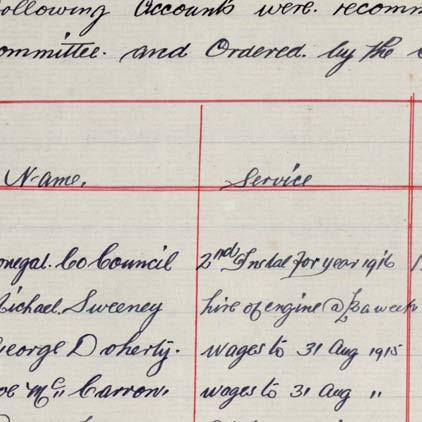 ollowing Accounts were. recomm
ommittee. and Ordered. by the
Name. Service
onegal. Co Council 2nd Instal for year 1916
ichael. Sweeney hire of engine @ a week
George Doherty. wages to 31 Aug 1915
oe Mc Carron. wages to 31 Aug "